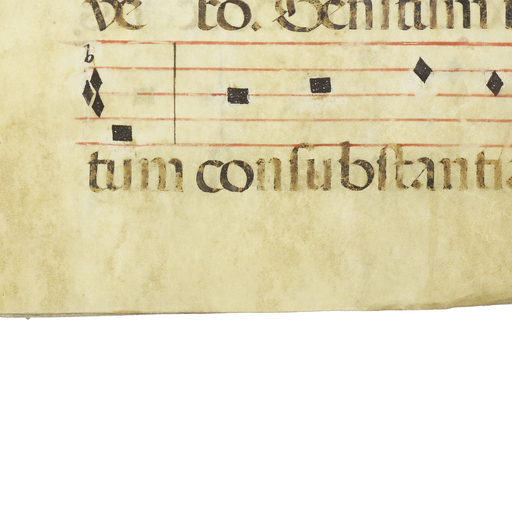 ve ro. Genitum
b
tum conſubſtantia